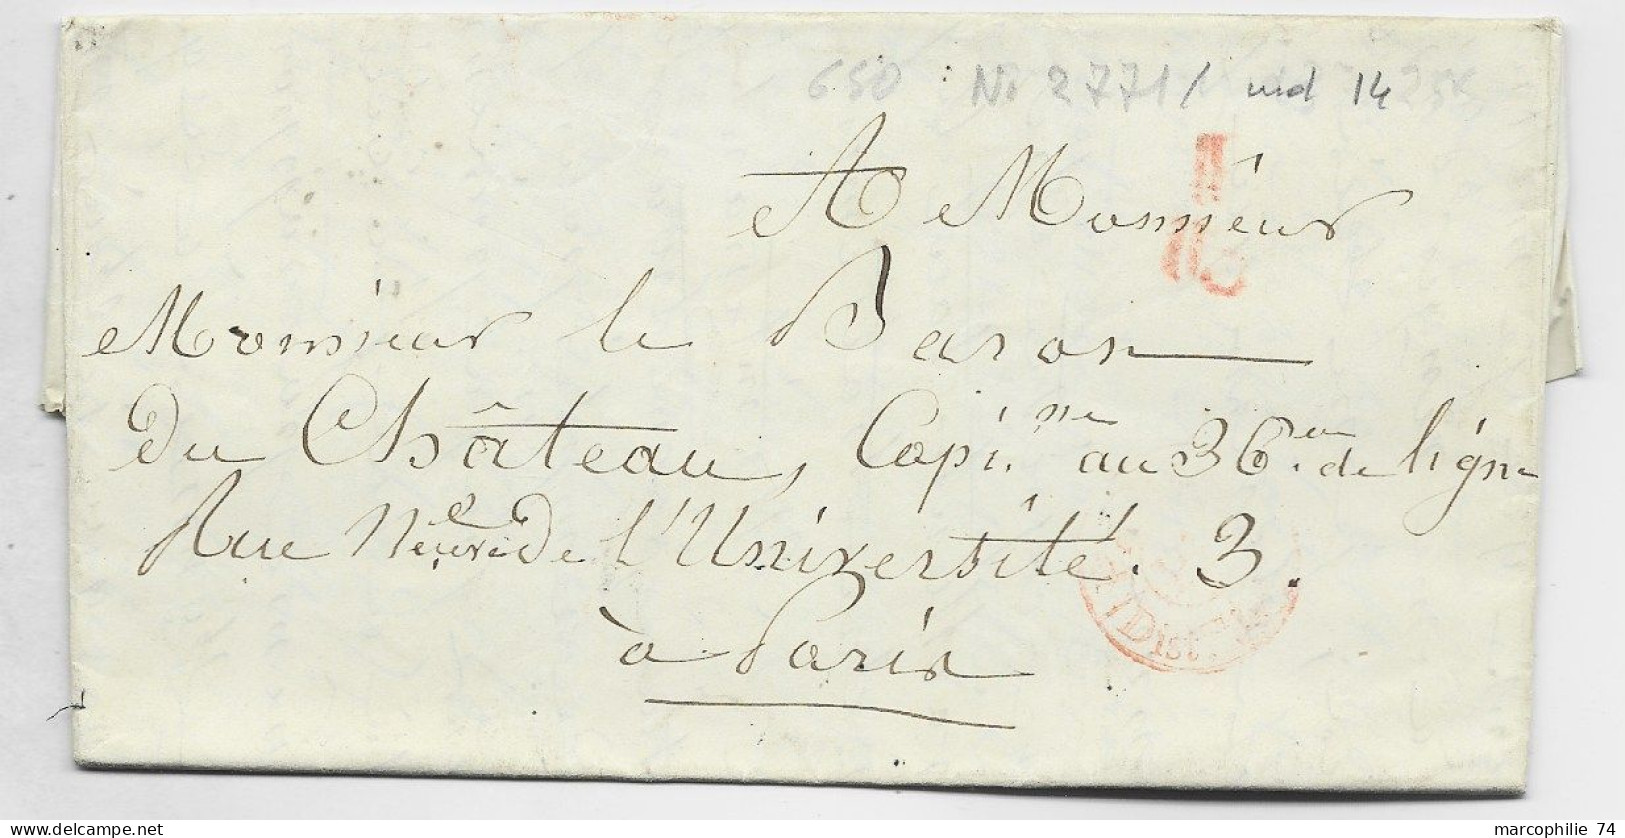 650 No 2771/ ind 14
A Monsieur
Monsieur le Baron
Du Château, Capi.ne au 36.me de ligne
Rue Neuve De l'Université. 3.
à Paris
Dist.
marcophilie 74